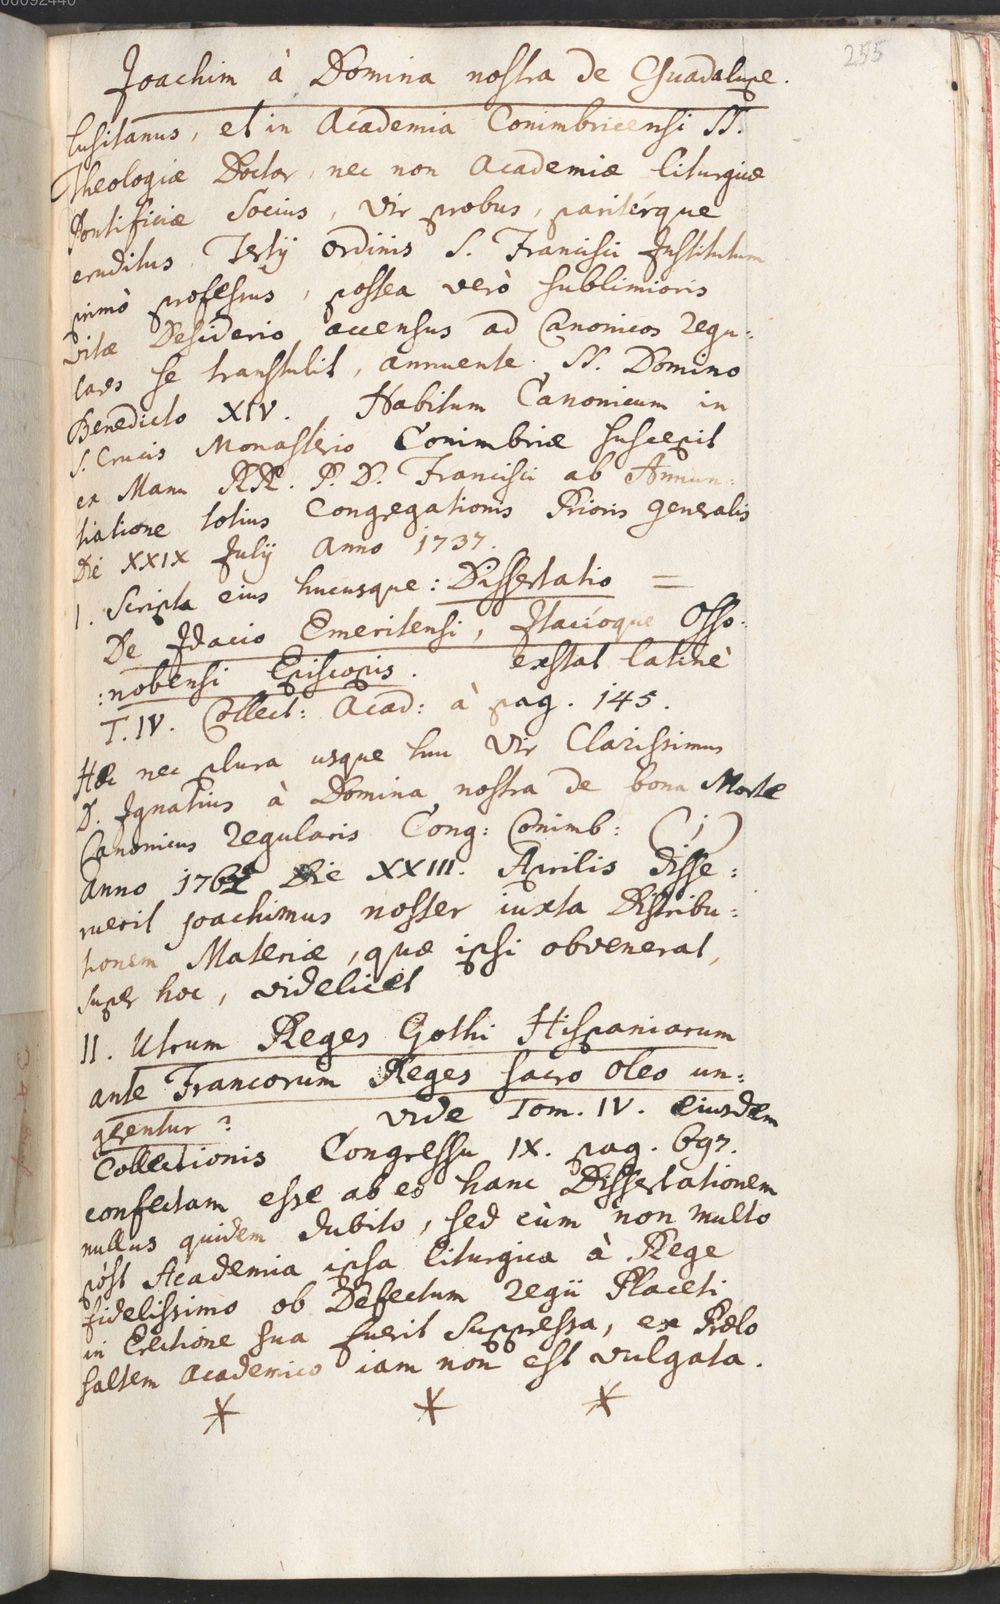 00092440
255
Joachim à Domina nostra de Guadalupe.
Lusitanus, et in Academia Conimbricensi SS.
Theologiæ Doctor, nec non Academiæ liturgicæ
Pontificiæ Socius, Vir probus, paritérque
eruditus Tertij ordinis S. Francisci Institutum
primò professus, postea verò sublimioris
vitæ Desiderio accensus ad Canonicos regu:
lares se transtulit, annuente SS. Domino
Benedicto XIV. Habitum Canonicum in
S. Crucis Monasterio Conimbriæ suscepit
ex Manu RR. P. D. Francisci ab Annun:
tiatione totius Congregationis Prioris generalis
Dié XXIX Julij Anno 1737.
I. Scripta eius hucusque: Dissertatio =
De Idacio Emeritensi, Itacíoque Osso:
:nobensi Episcopis. exstat latinè
T. IV. Collect: Acad: à pag. 145.
Hæc nec plura usque huc Vir Clarissimus
D. Ignatius à Domina nostra de bona Morte
Canonicus regularis Cong: Conimb: (;)
Anno Die XXIII. Aprilis disse:
ruerit Joachimus noster iuxta Distribu:
tionem Materiæ, quæ ipsi obvenerat,
super hoc, videlicet
II. Utrum Reges Gothi Hispaniarum
ante Francorum Reges sacro Oleo un:
gerentur? vide Tom. IV. eiusdem
Collectionis Congressu IX. pag. 697.
confectam esse ab eo hanc Dissertationem
nullus quidem dubito, sed cùm non multo
pòst Academia ipsa liturgica à Rege
fidelissimo ob Defectum regii Placeti
in Erectione sua fuerit suppressa, ex Prælo
saltem Academico iam non est vulgata.
* * *